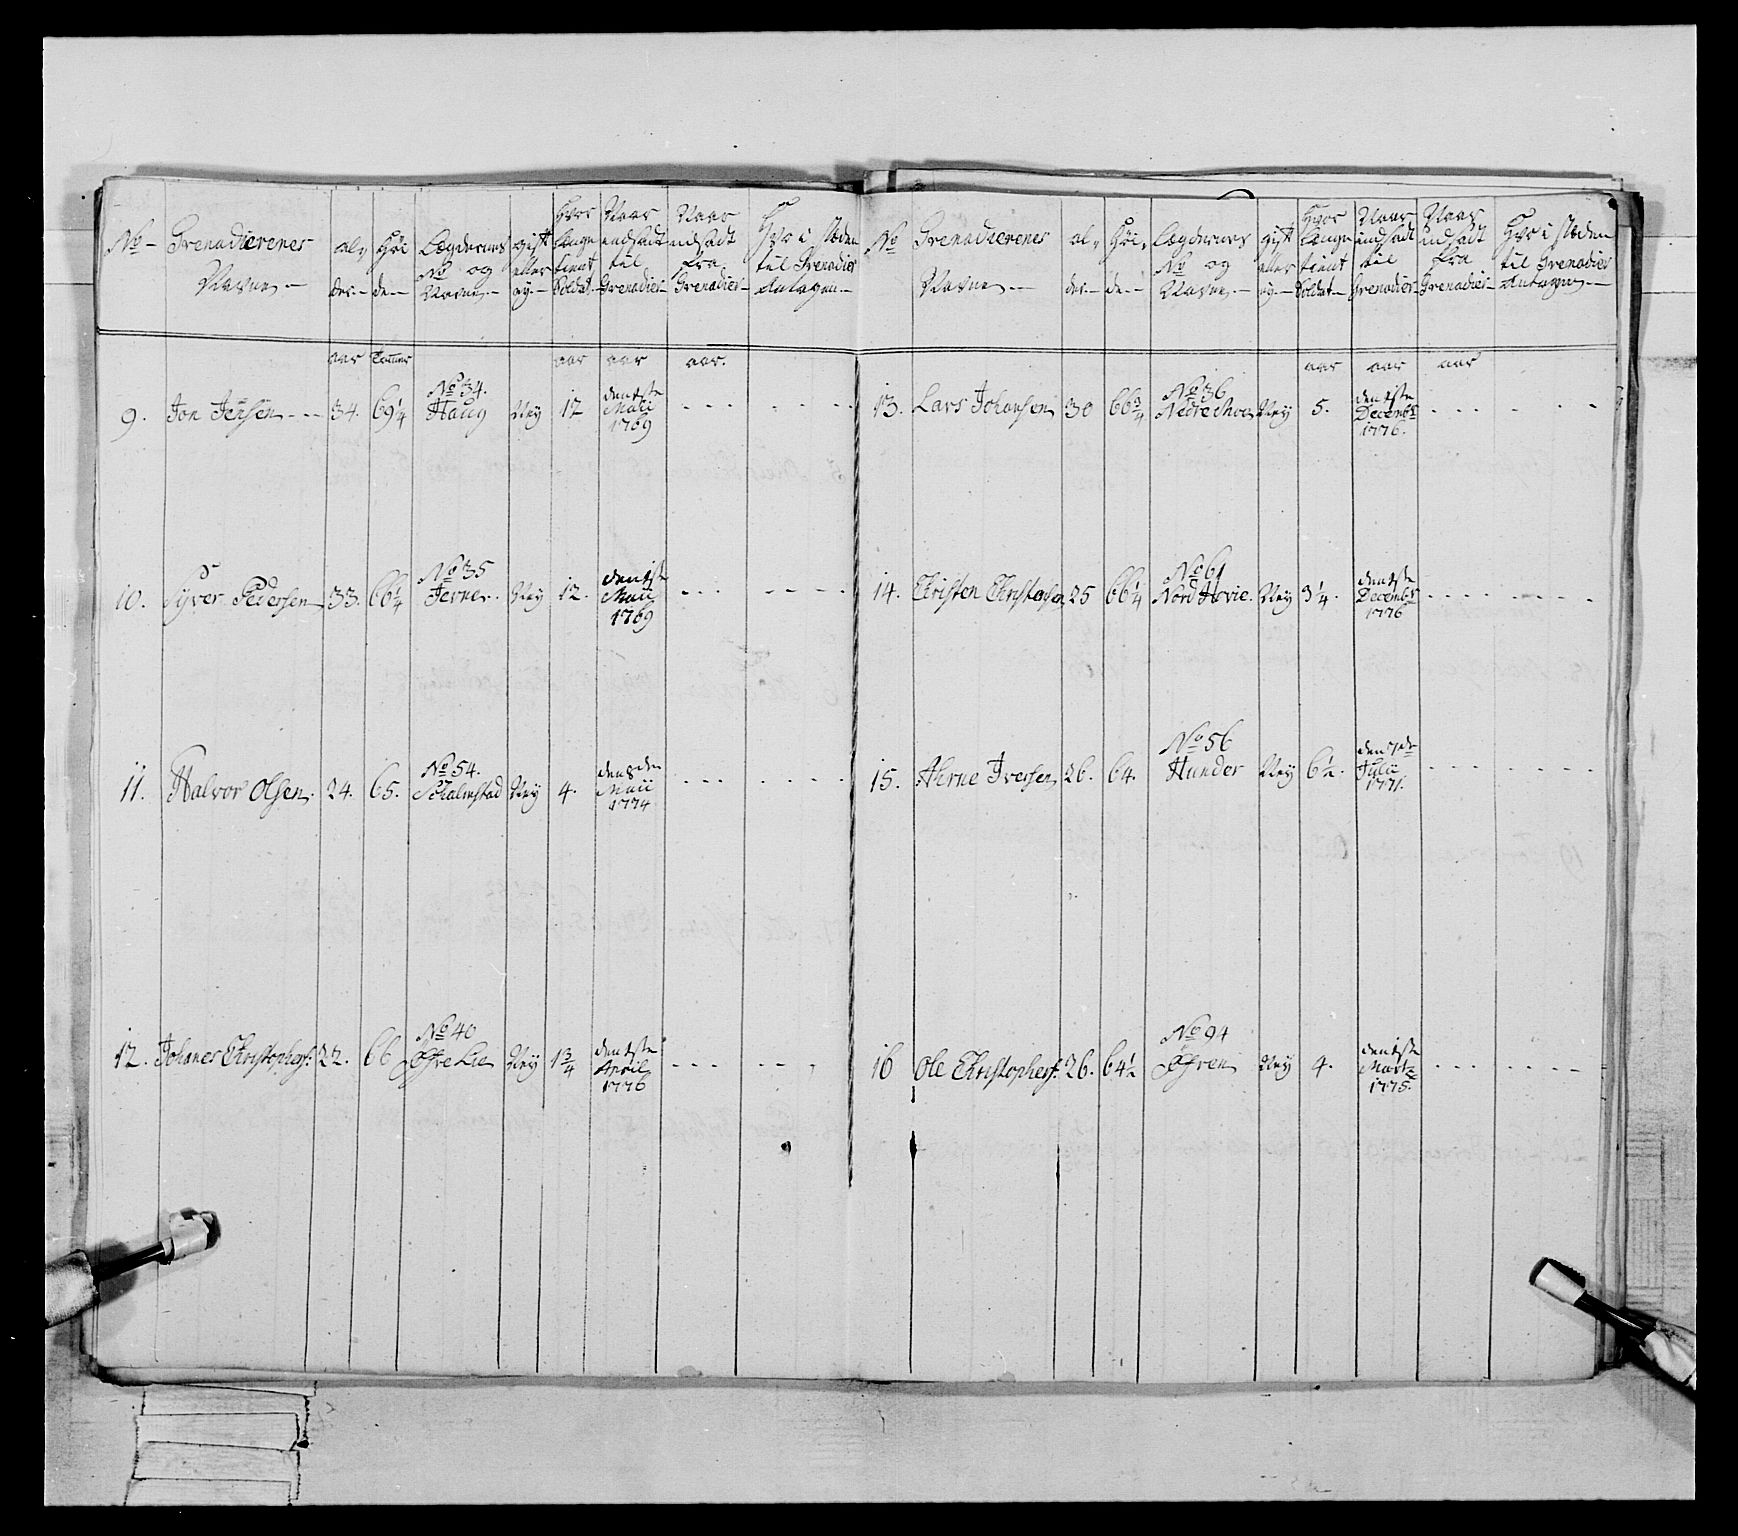 No
Grenadierenes Navne
al-der
Höi-de
Lægdernes No og Navne
gift eller ey
Hvor længe tient Soldat
Naar indsadt til Grenadier
Naar udsadt fra Grenadier
Hvo i stæden til Grenadier antagen
aar Tommer aar aar aar.
9. Jon Jensen 34. 69¼ No 34. Haug Ney 12 den 1ste Maii 1769
10. Syver Pedersen 33. 66¼ No 35 Jerne Ney 12. den 1ste Maii 1769
11. Halvor Olsen 24. 65. No 54. Schalmstad Ney 4. den 8den Maii 1774
12. Johanes Christophers: 22. 66 No 40 Øfre Lie Ney 1¾ den 1ste April 1776
No
Grenadierenes Navne
al-der
Höi-de
Lægdernes No og Navne
gift eller ey
Hvor længe tient Soldat
Naar indsadt til Grenadier
Naar udsadt fra Grenadier
Hvo i stæden til Grenadier antagen
aar aar aar
13. Lars Johansen 30 66¾ No 36 Nedre Moe Ney 5. den 1ste Decembr 1776.
14. Christen Christensen 25 66¼ No 61 Nord Hovie. Ney 3¼. den 1ste Decembr 1776
15. Ahrne Iversen 26. 64. No 56 Hunder Ney 6½. den 7de Julii 1771.
16 Ole Christophers: 26. 64½ No 94 Øfren Ney 4. den 1ste Martz 1775.